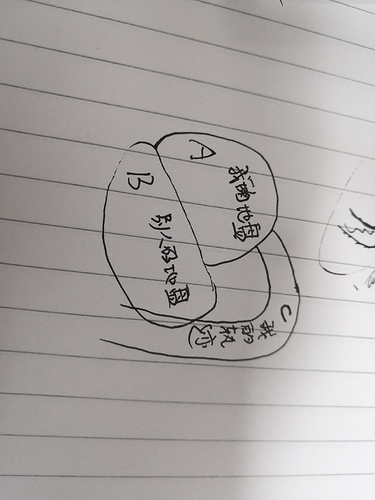 A
我的地盘
B
别人的地盘
C
我的轨迹